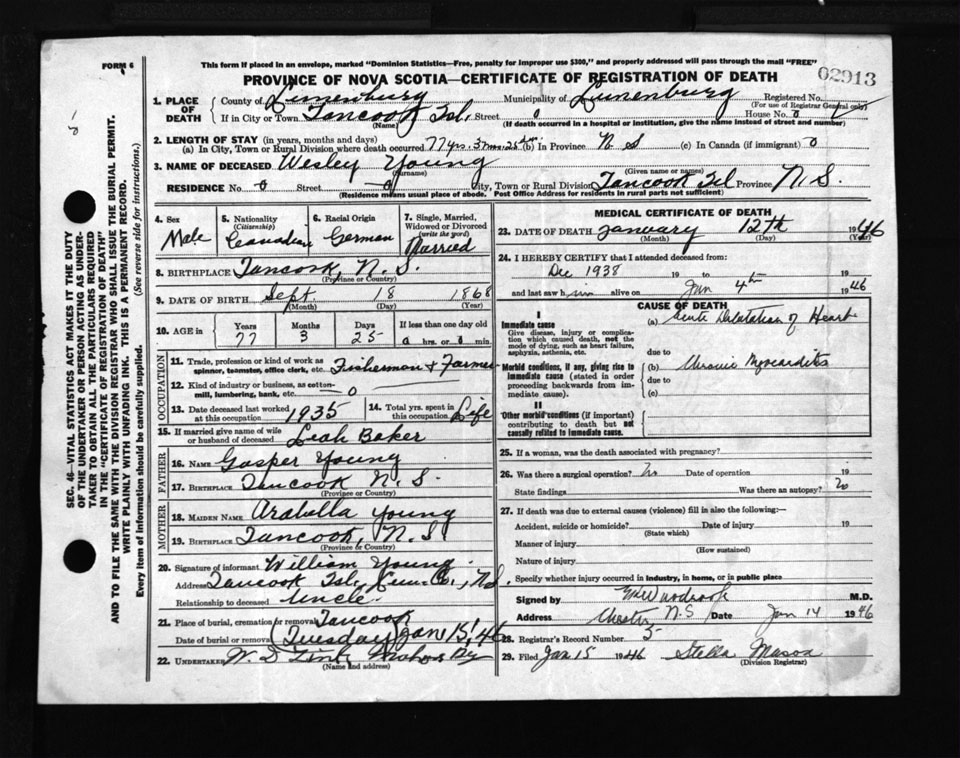 FORM 6
This form if placed in an envelope, marked "Dominion Statistics—Free, penalty for improper use $300," and properly addressed will pass through the mail "FREE"
PROVINCE OF NOVA SCOTIA—CERTIFICATE OF REGISTRATION OF DEATH
02913
1. PLACE OF DEATH
County of Lunenburg Municipality of Lunenburg Registered No.
(For use of Registrar General only)
If in City or Town Tancook Isl. Street 0 House No. 0
(Name) (If death occurred in a hospital or institution, give the name instead of street and number)
2. LENGTH OF STAY (in years, months and days)
(a) In City, Town or Rural Division where death occurred 77 yrs. 3 mos. 25 (b) In Province N S (c) In Canada (if immigrant) 0
3. NAME OF DECEASED Wesley Young
(Surname) (Given name or names)
RESIDENCE No 0 Street 0 City, Town or Rural Division Tancook Isl Province N.S.
(Residence means usual place of abode. Post Office Address for residents in rural parts not sufficient)
4. Sex
Male
5. Nationality
(Citizenship)
Canadian
6. Racial Origin
German
7. Single, Married, Widowed or Divorced
(write the word)
Married
8. BIRTHPLACE Tancook, N. S.
(Province or Country)
9. DATE OF BIRTH Sept. 18 1868
(Month) (Day) (Year)
10. AGE in
Years Months Days If less than one day old
77 3 25 0 hrs. or 0 min.
OCCUPATION
11. Trade, profession or kind of work as spinner, teamster, office clerk, etc. Fisherman & Farmer
12. Kind of industry or business, as cotton-mill, lumbering, bank, etc. 0
13. Date deceased last worked at this occupation 1935
14. Total yrs. spent in this occupation Life
15. If married give name of wife or husband of deceased Leah Baker
FATHER
16. NAME Gasper Young
17. BIRTHPLACE Tancook N. S.
(Province or Country)
MOTHER
18. MAIDEN NAME Arabella Young
19. BIRTHPLACE Tancook, N. S
(Province or Country)
20. Signature of informant William Young
Address Tancook Isl, Lun. Co., N.S.
Relationship to deceased Uncle
21. Place of burial, cremation or removal Tancook
Date of burial or removal (Tuesday) Jan 15, '46
22. UNDERTAKER W. D
(Name and address)
MEDICAL CERTIFICATE OF DEATH
23. DATE OF DEATH January 12th 1946
(Month) (Day) (Year)
24. I HEREBY CERTIFY that I attended deceased from:
Dec 1938 19 to 19
and last saw him alive on Jan 4th 1946
CAUSE OF DEATH
I
Immediate cause
Give disease, injury or complication which caused death, not the mode of dying, such as heart failure, asphyxia, asthenia, etc.
(a) Acute Dilatation of Heart
due to
Morbid conditions, if any, giving rise to immediate cause (stated in order proceeding backwards from immediate cause).
(b) Chronic Myocarditis
due to
(c)
II
Other morbid conditions (if important) contributing to death but not causally related to immediate cause.
25. If a woman, was the death associated with pregnancy?
26. Was there a surgical operation? No Date of operation 19
State findings Was there an autopsy? No
27. If death was due to external causes (violence) fill in also the following:—
Accident, suicide or homicide? Date of injury 19
(State which)
Manner of injury
(How sustained)
Nature of injury
Specify whether injury occurred in industry, in home, or in public place
Signed by M.D.
Address Chester N.S Date Jan 14 1946
28. Registrar's Record Number 5
29. Filed Jan 15 1946 Stella Mason
(Division Registrar)
SEC. 46—VITAL STATISTICS ACT MAKES IT THE DUTY
OF THE UNDERTAKER OR PERSON ACTING AS UNDER-
TAKER TO OBTAIN ALL THE PARTICULARS REQUIRED
IN THE "CERTIFICATE OF REGISTRATION OF DEATH"
AND TO FILE THE SAME WITH THE DIVISION REGISTRAR WHO SHALL ISSUE THE BURIAL PERMIT.
WRITE PLAINLY WITH UNFADING INK. THIS IS A PERMANENT RECORD.
Every item of information should be carefully supplied. (See reverse side for instructions.)